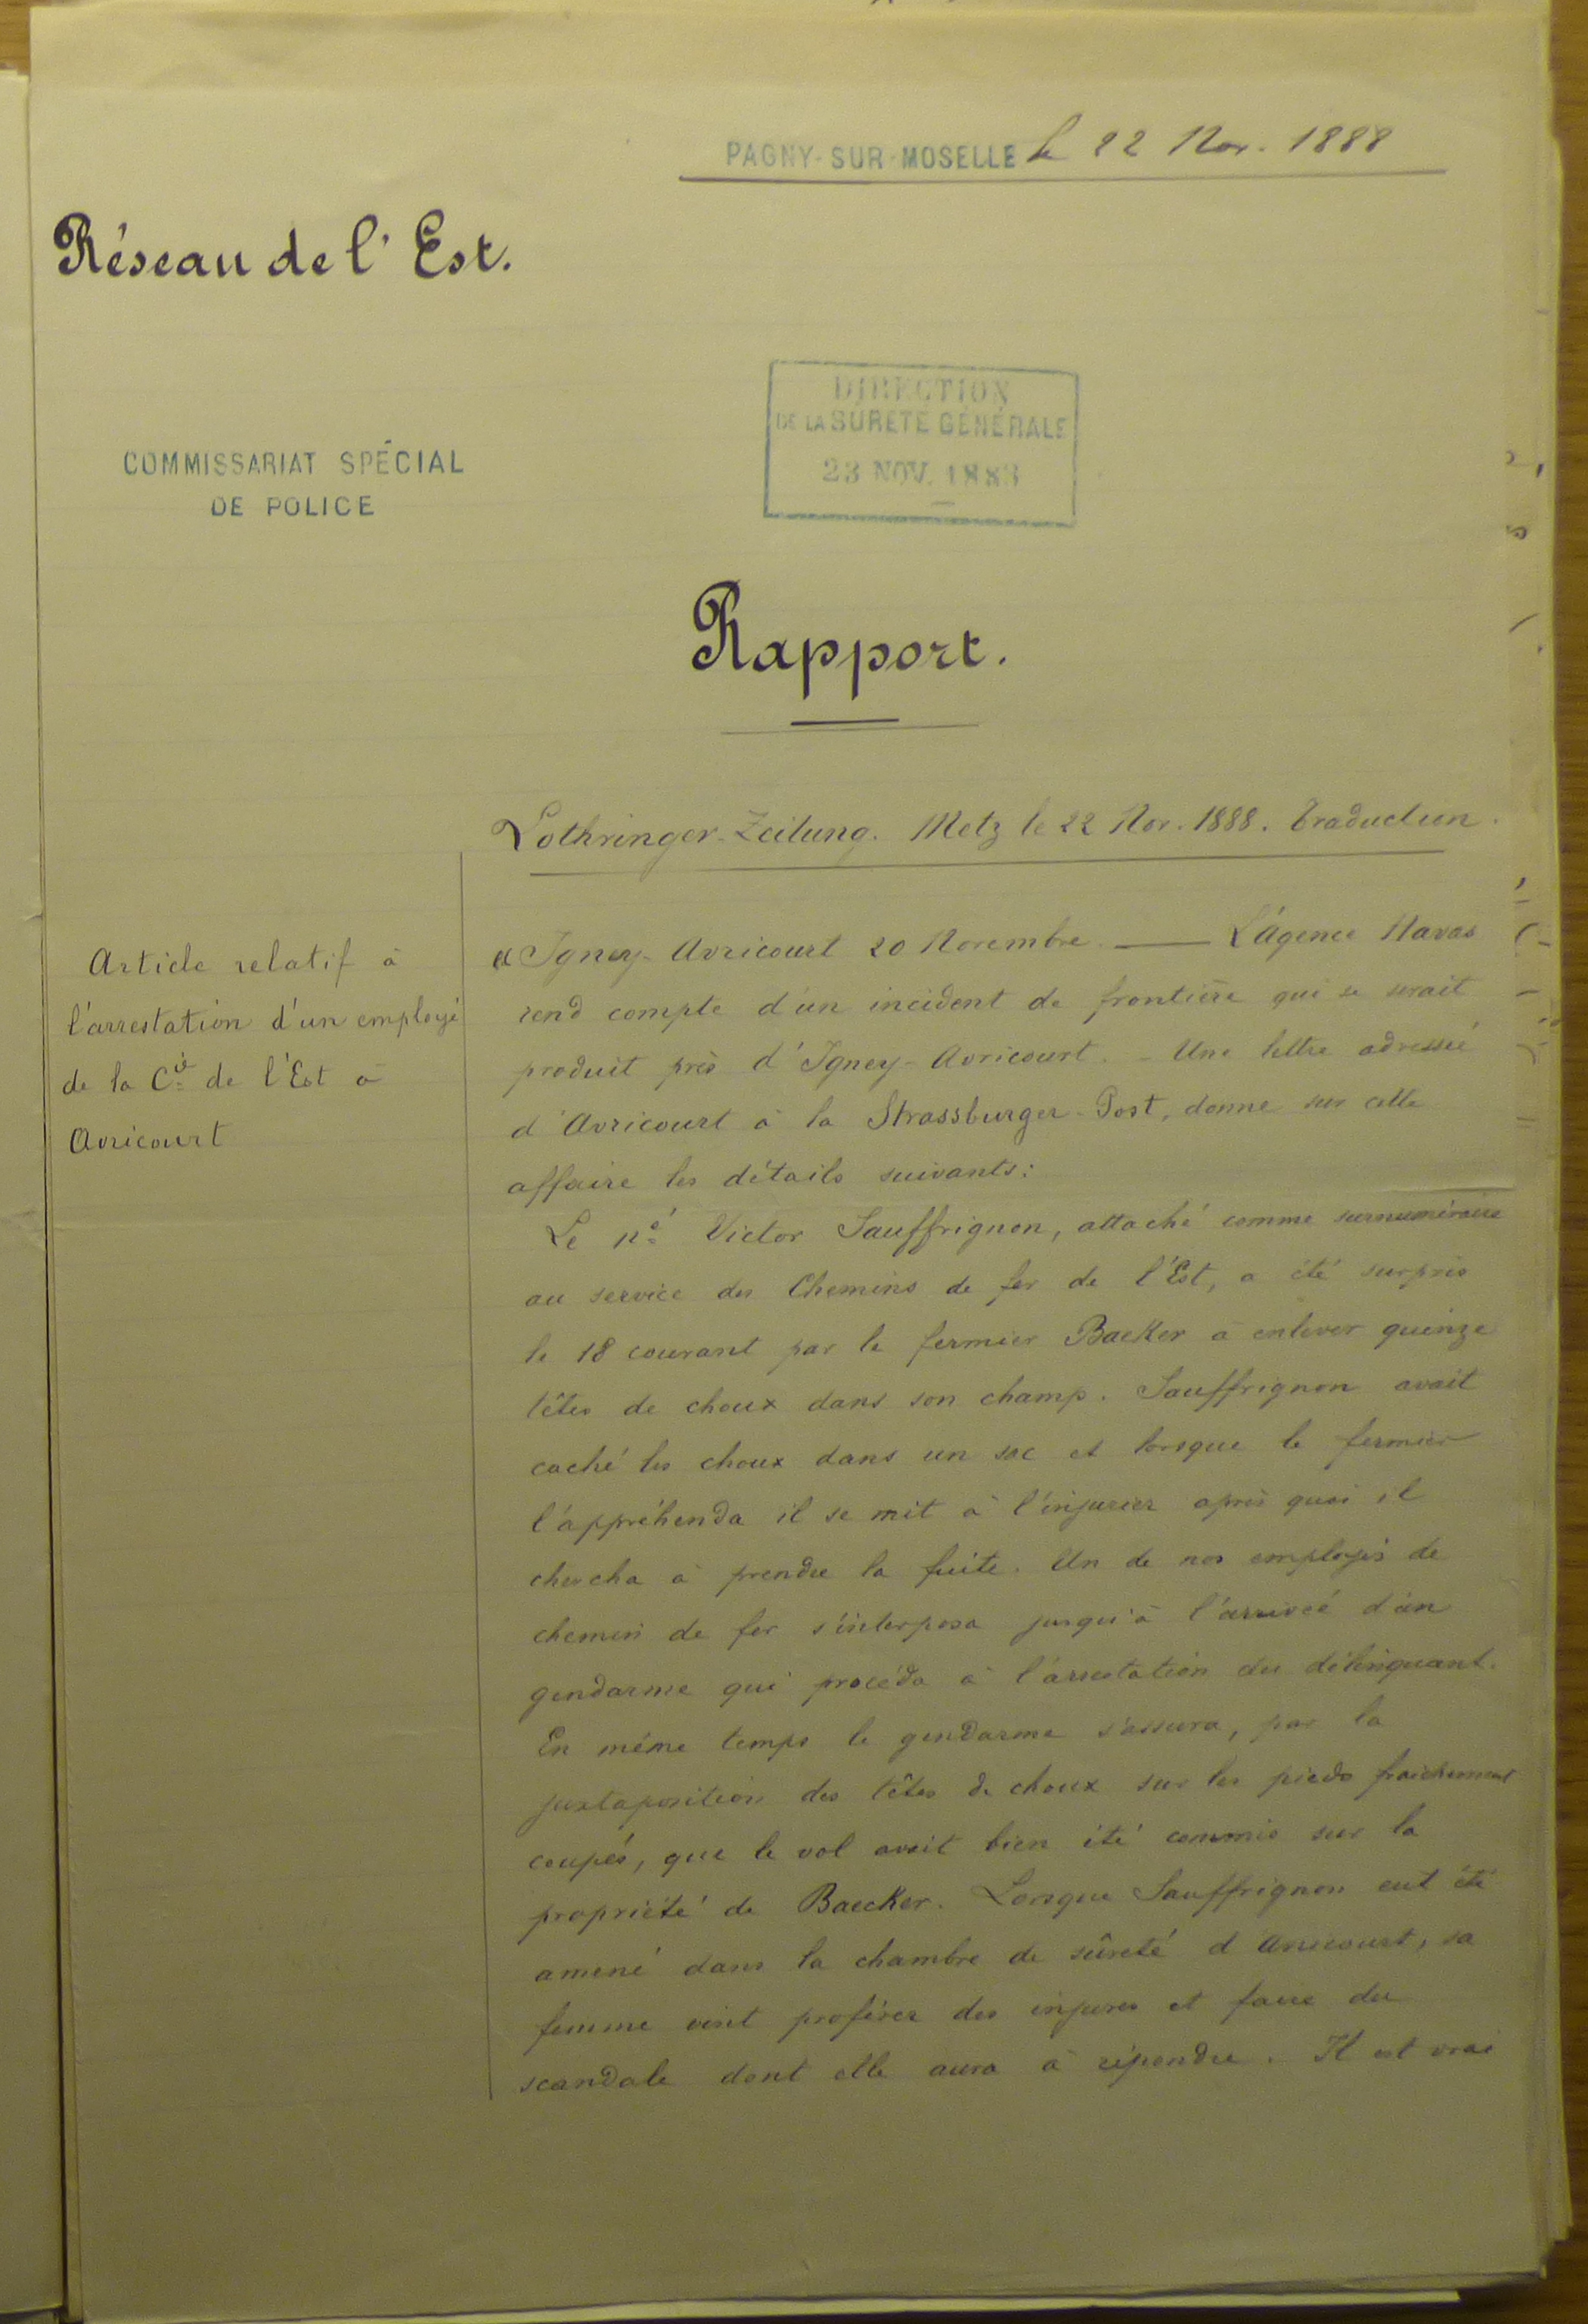 PAGNY-SUR-MOSELLE le 22 Nov. 1888
Réseau de l'Est.
COMMISSARIAT SPÉCIAL
DE POLICE
DIRECTION
DE LA SURETÉ GÉNÉRALE
23 NOV. 1888
Rapport.
Lothringer-Zeitung. Metz le 22 Nov. 1888. Traduction.
Article relatif à
l'arrestation d'un employé
de la Cie de l'Est à
Avricourt
« Igney-Avricourt 20 Novembre. — L'Agence Havas
rend compte d'un incident de frontière qui se serait
produit près d'Igney-Avricourt. - Une lettre adressée
d'Avricourt à la Strassburger-Post, donne sur cette
affaire les détails suivants:
Le né Victor Sauffrignon, attaché comme surnuméraire
au service des Chemins de fer de l'Est, a été surpris
le 18 courant par le fermier Baecker à enlever quinze
têtes de choux dans son champ. Sauffrignon avait
caché les choux dans un sac et lorsque le fermier
l'appréhenda il se mit à l'injurier après quoi il
chercha à prendre la fuite. Un de nos employés de
chemin de fer s'interposa jusqu'à l'arrivée d'un
gendarme qui procéda à l'arrestation du délinquant.
En même temps le gendarme s'assura, par la
juxtaposition des têtes de choux sur les pieds fraichement
coupés, que le vol avait bien été commis sur la
propriété de Baecker. Lorsque Sauffrignon eut été
amené dans la chambre de sûreté d'Avricourt, sa
femme vint proférer des injures et faire du
scandale dont elle aura à répondre. Il est vrai